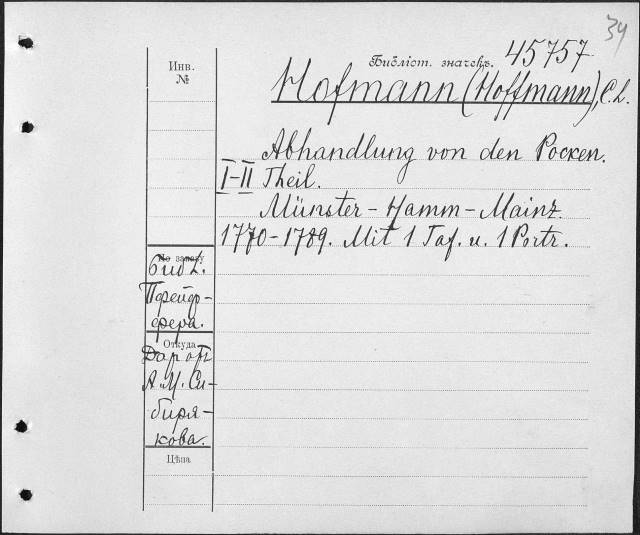 34
Инв.
№
Библіот. значекъ. 45757
Hofmann (Hoffmann), C. L.
Abhandlung von den Pocken.
I-II Theil.
Münster - Hamm - Mainz.
1770-1789. Mit 1 Taf. u. 1 Portr.
По заказу
Пфейф-
фера.
Откуда
Дар от
А. М. Си-
биря-
кова.
Цѣна